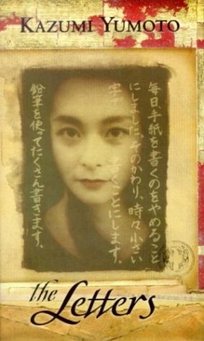 KAZUMI YUMOTO
毎日手紙を書くのをやめること
にしました。そのかわり、時々小さい
字
くことにします。
鉛筆を使ってたくさん書きます。
the Letters